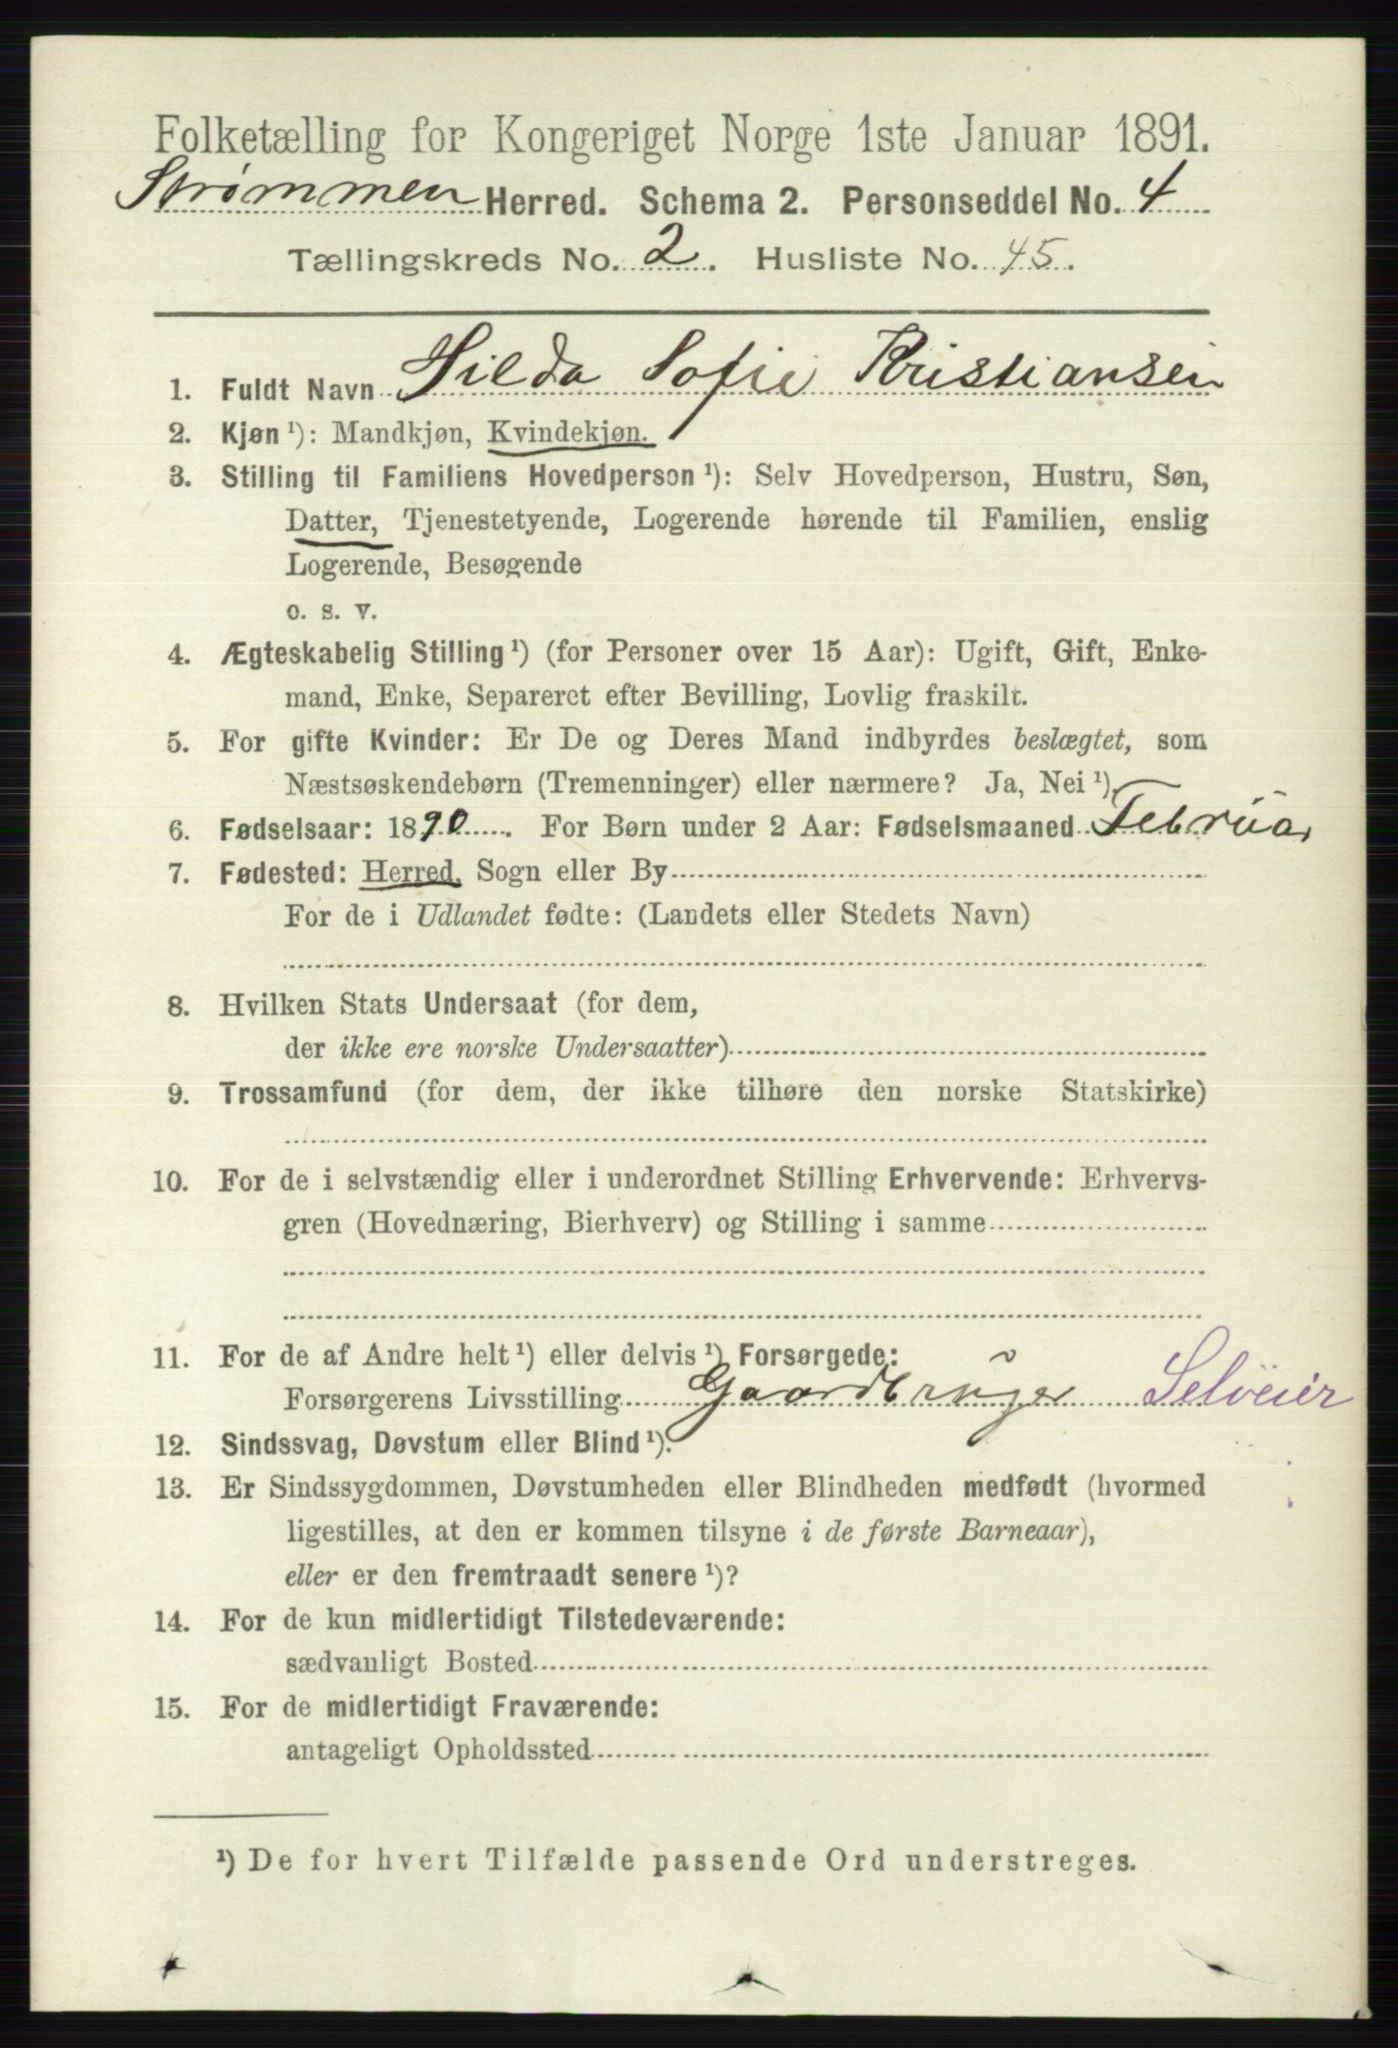 Folketælling for Kongeriget Norge 1ste Januar 1891.
Strømmen Herred. Schema 2. Personseddel No. 4
Tællingskreds No. 2. Husliste No. 45.
1. Fuldt Navn Hilda Sofie Kristiansen
2. Kjøn ¹): Mandkjøn, Kvindekjøn.
3. Stilling til Familiens Hovedperson ¹): Selv Hovedperson, Hustru, Søn,
Datter, Tjenestetyende, Logerende hørende til Familien, enslig
Logerende, Besøgende
o. s. v.
4. Ægteskabelig Stilling ¹) (for Personer over 15 Aar): Ugift, Gift, Enke-
mand, Enke, Separeret efter Bevilling, Lovlig fraskilt.
5. For gifte Kvinder: Er De og Deres Mand indbyrdes beslægtet, som
Næstsøskendebørn (Tremenninger) eller nærmere? Ja, Nei ¹)
6. Fødselsaar: 1890. For Børn under 2 Aar: Fødselsmaaned Februar
7. Fødested: Herred, Sogn eller By
For de i Udlandet fødte: (Landets eller Stedets Navn)
8. Hvilken Stats Undersaat (for dem,
der ikke ere norske Undersaatter)
9. Trossamfund (for dem, der ikke tilhøre den norske Statskirke)
10. For de i selvstændig eller i underordnet Stilling Erhvervende: Erhvervs-
gren (Hovednæring, Bierhverv) og Stilling i samme
11. For de af Andre helt ¹) eller delvis ¹) Forsørgede:
Forsørgerens Livsstilling Gaardbruger Selveier
12. Sindssvag, Døvstum eller Blind ¹).
13. Er Sindssygdommen, Døvstumheden eller Blindheden medfødt (hvormed
ligestilles, at den er kommen tilsyne i de første Barneaar),
eller er den fremtraadt senere ¹)?
14. For de kun midlertidigt Tilstedeværende:
sædvanligt Bosted
15. For de midlertidigt Fraværende:
antageligt Opholdssted
¹) De for hvert Tilfælde passende Ord understreges.